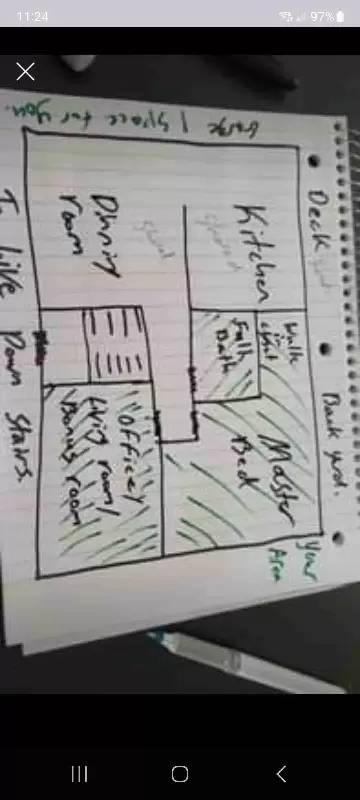 11:24
97%
Garage | Space for you.
Deck
Back yard.
Kitchen
shared
Dinning
room
shared
Walk
in
Full
Bath
Master
Bed
Office/
living room/
Bonus room
your
Area
I Live Down Stairs.